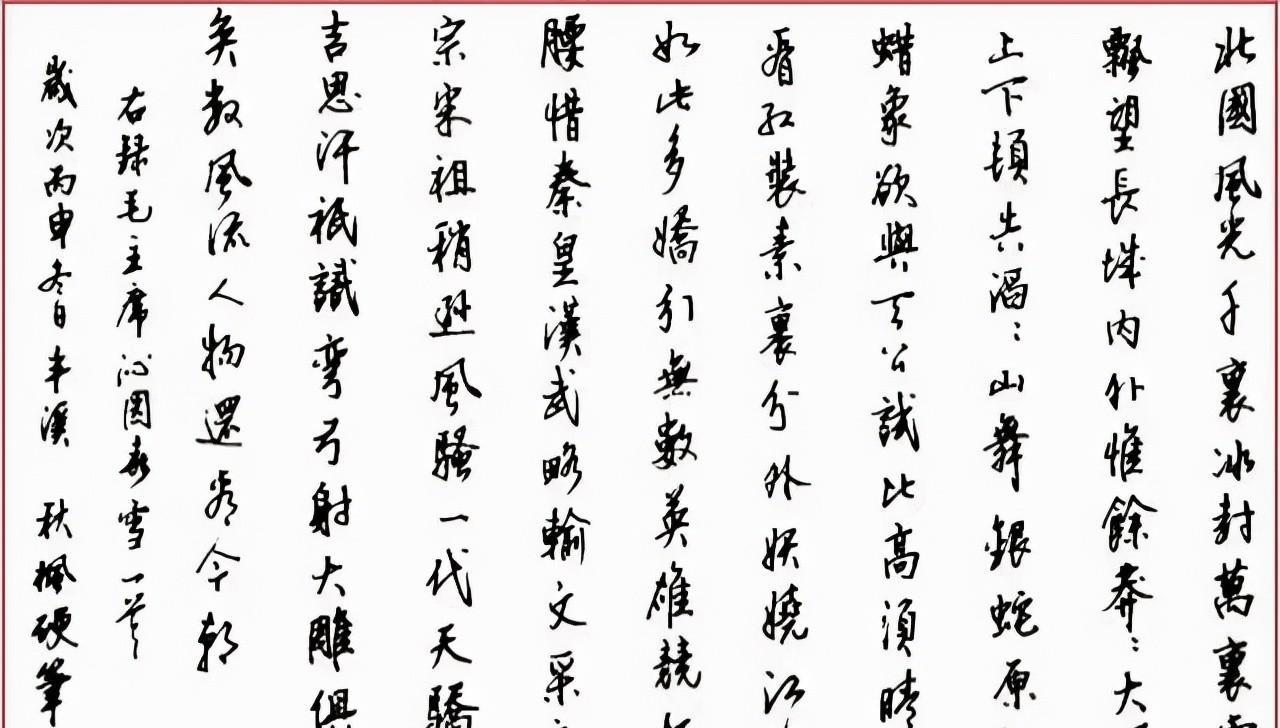 北國風光千裏冰封萬裏
飄望長城内外惟餘莽:大
上下頓失滔:山舞銀蛇原
蜡象欲與天公試比高須晴
看紅裝素裹分外妖嬈江
如此多嬌引無數英雄競
腰惜秦皇漢武略輸文采
宗宋祖稍遜風騷一代天驕
吉思汗祇識彎弓射大雕俱
矣數風流人物還看今朝
右録毛主席沁園春雪一首
歲次丙申冬日丰溪 秋楓硬筆